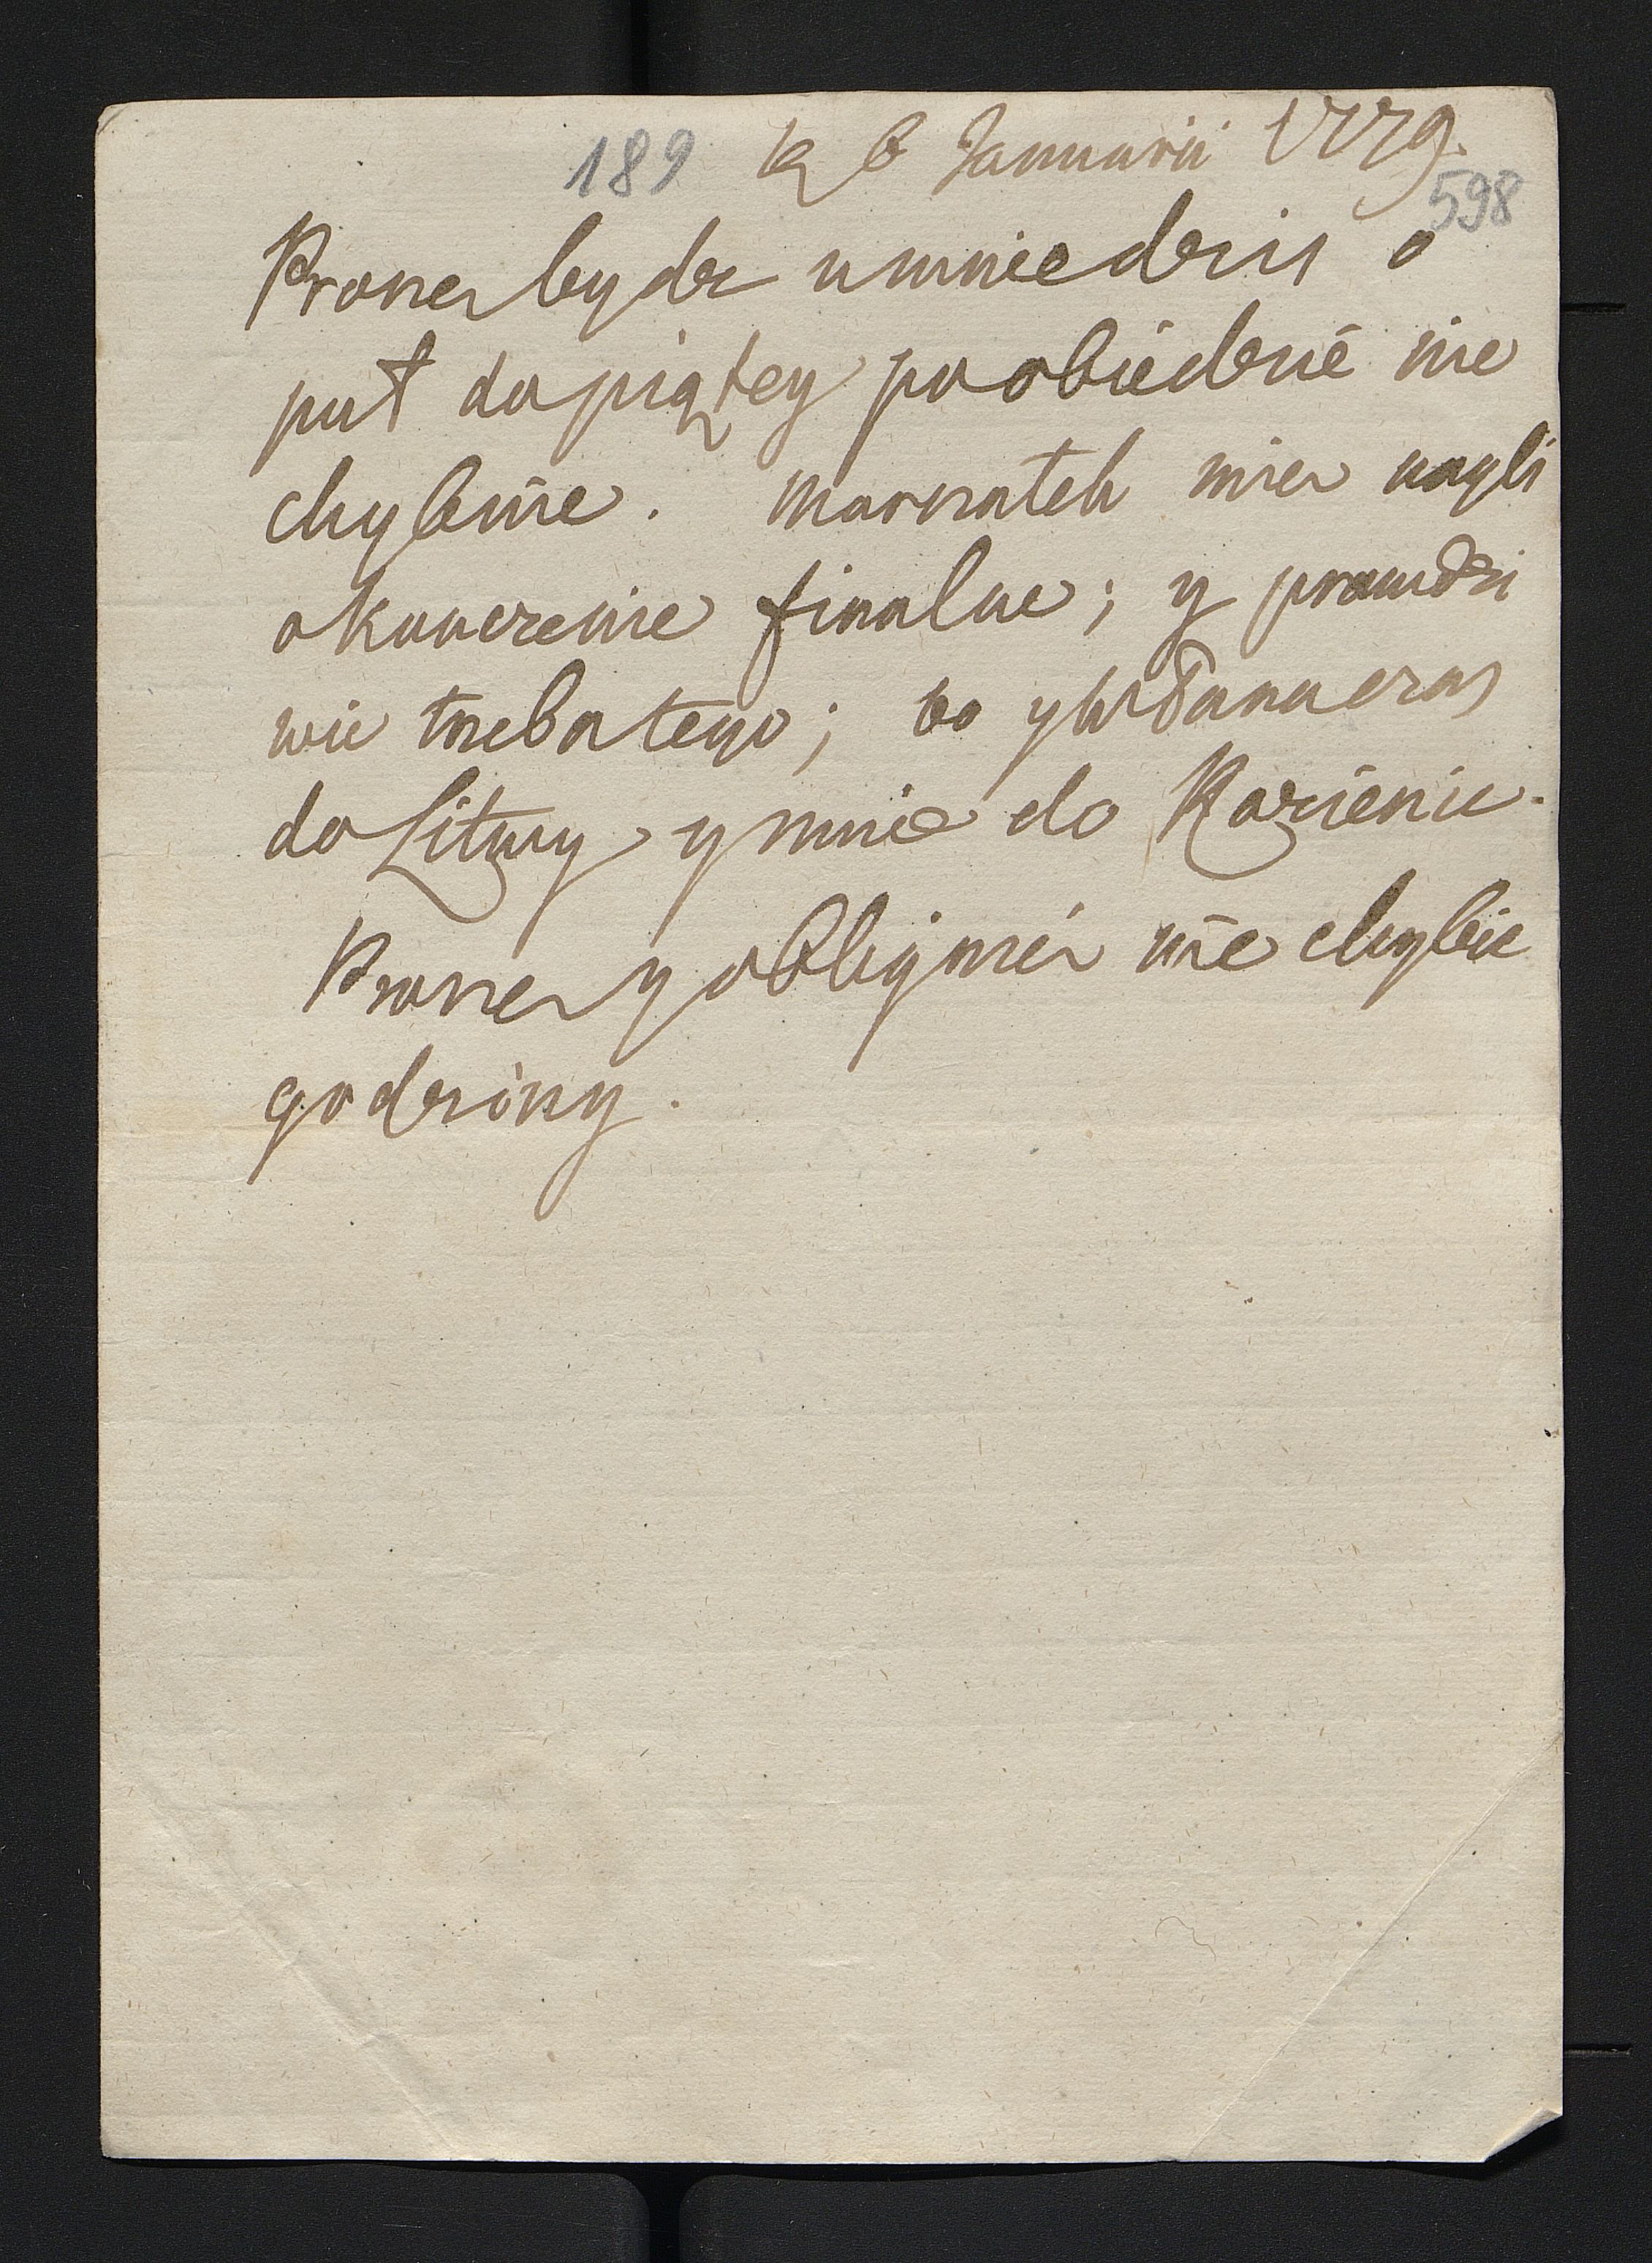 189 R 6 Januarii 1779.
598
Prosze bydz u mnie dzis o
puł do piątey po obiedzie nie
chybnie. Marszałek mie nagli
o konczenie finalne; y prawdzi
wie trzeba tego; bo y w Panu czas
do Litwy y mnie do Kozienic.
Prosze y obliguie nie chybic
godziny.